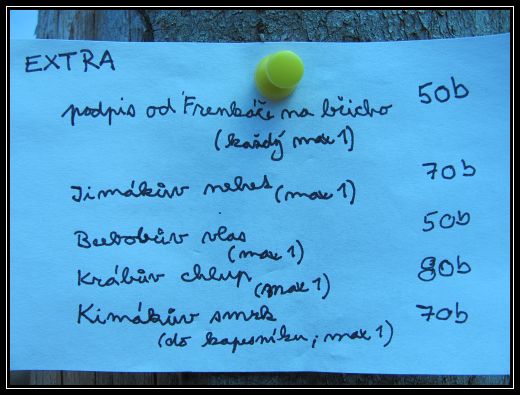 EXTRA
podpis od Frenkáče na břicho 50b
(každý max 1)
Jimákův nehet (max 1) 70b
Bubobův vlas 50b
(max 1)
Krábův chlup 80b
(max 1)
Kimákův smrk 70b
(do kapesníku, max 1)